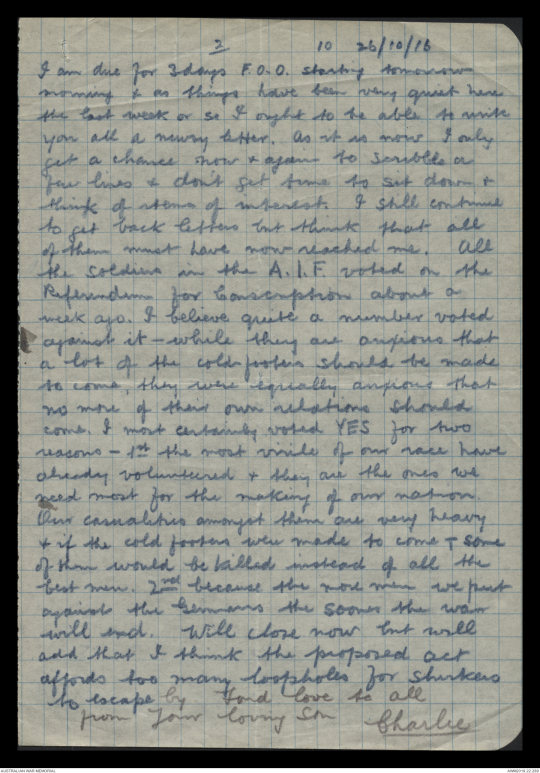 2 10 26/10/16
I am due for 3 days F.O.O. starting tomorrow
morning & as things have been very quiet here
the last week or so I ought to be able to write
you all a newsy letter. As it is now I only
get a chance now & again to scribble a
few lines & don't get time to sit down &
think of items of interest. I still continue
to get back letters but think that all
of them must have now reached me. All
the soldiers in the A.I.F. voted on the
Referendum for Conscription about a
week ago. I believe quite a number voted
against it – while they are anxious that
a lot of the cold-footers should be made
to come, they were equally anxious that
no more of their own relations should
come. I most certainly voted YES for two
reasons – 1st the most virile of our race have
already volunteered & they are the ones we
need most for the making of our nation.
Our casualities amongst them are very heavy
& if the cold footers were made to come – some
of them would be killed instead of all the
best men. 2nd because the more men we put
against the Germans the sooner the war
will end. Will close now but will
add that I think the proposed act
affords too many loopholes for shirkers
to escape by Fond love to all
from Your loving Son
Charlie
AUSTRALIAN WAR MEMORIAL